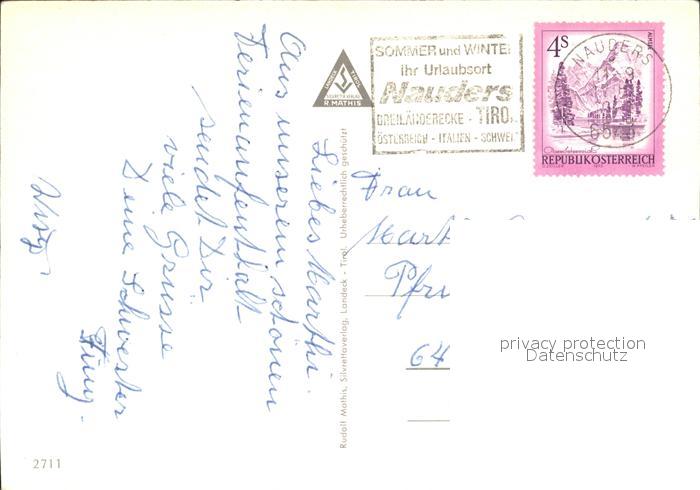 Liebes Marthi.
Aus unserem schönen
Ferienaufenthalt
sendet Dir
viele Grüsse
Deine Schwester
SILVRETTA VERLAG
R. MATHIS
Rudolf Mathis, Silvrettaverlag, Landeck - Tirol. Urheberrechtlich geschützt
SOMMER und WINTER
ihr Urlaubsort
Nauders
DREILÄNDERECKE - TIROL
ÖSTERREICH - ITALIEN - SCHWEIZ
NAUDERS
4S
REPUBLIK ÖSTERREICH
Frau
Mart
Pfr
64
privacy protection
Datenschutz
2711